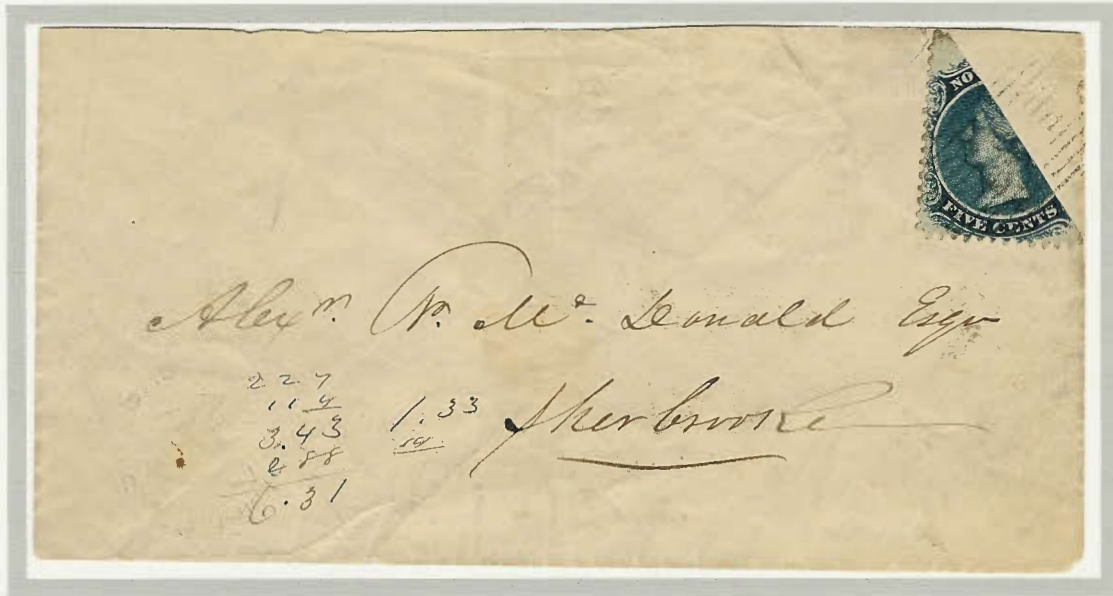 NO
FIVE CENTS
Alexr. N. Mc. Donald Esqr
Sherbrooke
2 2 7
1 1 4
3.43
2 88
6.31
1.33